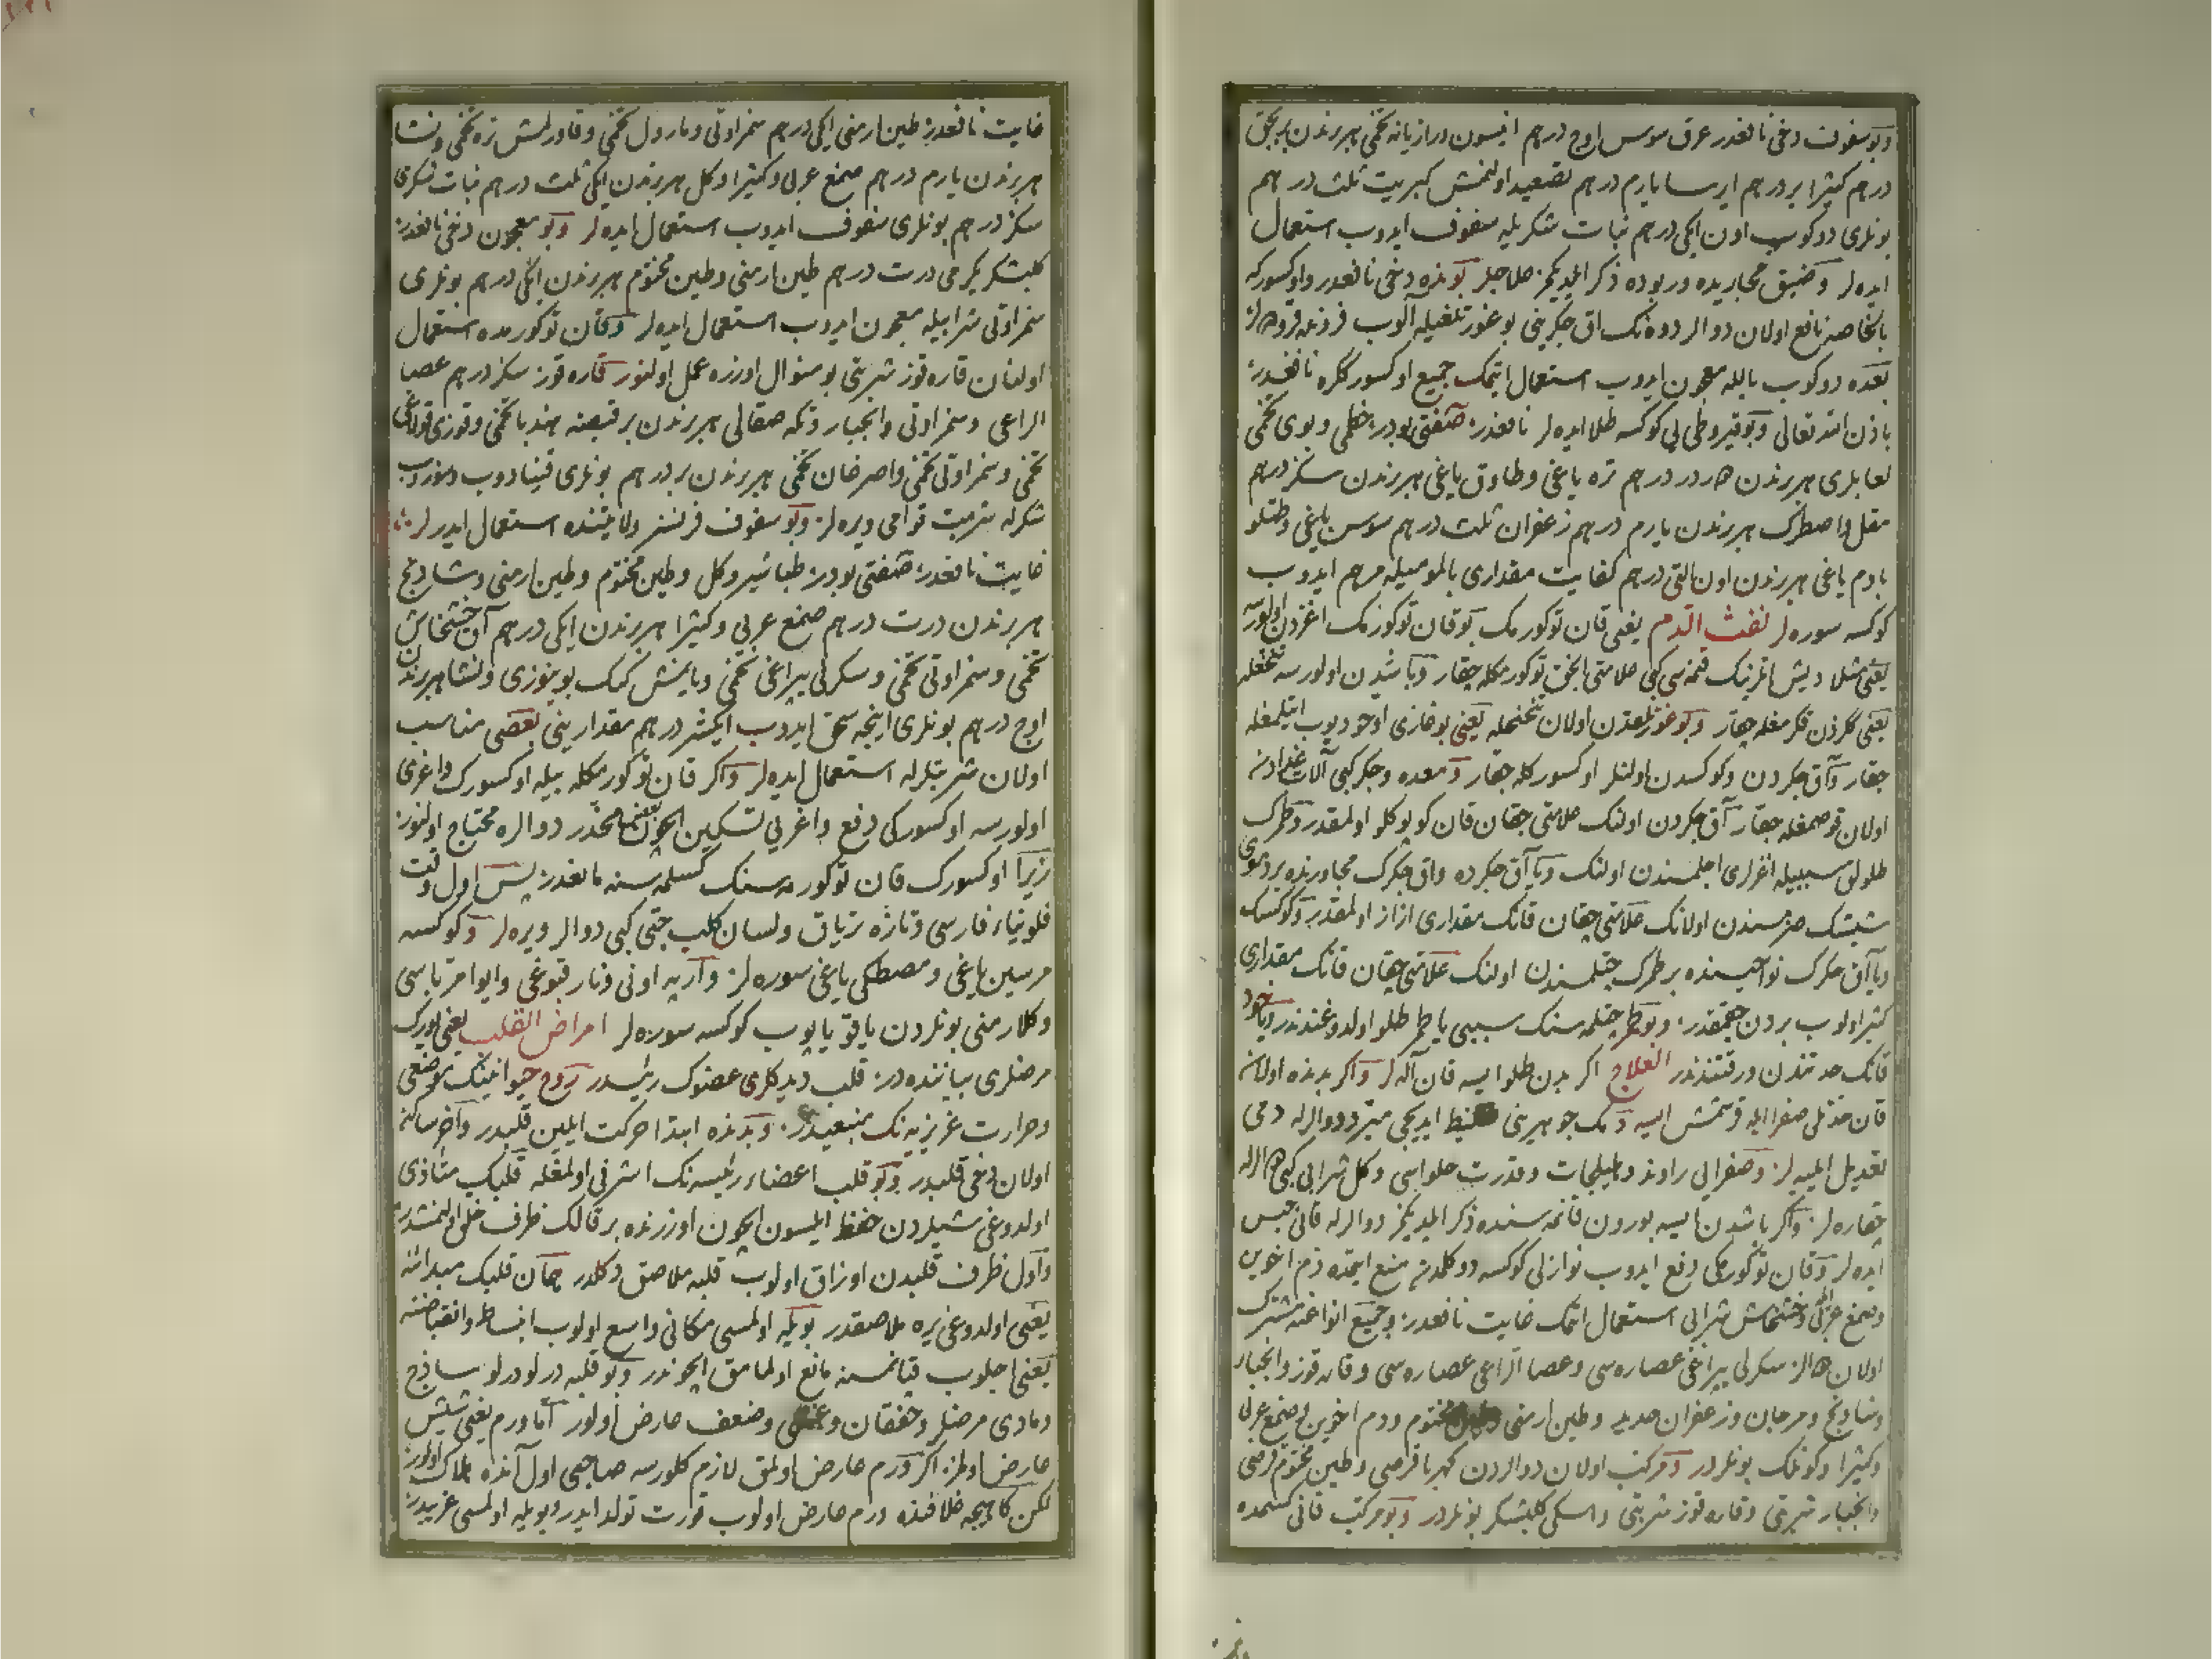 وبو سفوف دخی نافعدر عرق سوس اوچ درهم انیسون و رازیانه تخمی هربرندن بر بچق
درهم کثیرا بر درهم ایرسا یارم درهم تصعید اولنمش کبریت ثلث درهم
بونلری دوکوب اون ایکی درهم نبات شکریله سفوف ایدوب استعمال
ایده لر وضیق مجاریده و ربوده ذکر ایلدیکمز علاجلر بونده دخی نافعدر و اوکسورکه
بالخاصه نافع اولان دوالر دوه نک اق جکرینی آلوب
بعده دوکوب بالله معجون ایدوب استعمال ایتمک جمیع اوکسورکلره نافعدر
باذن الله تعالی وبو قیروطی یی کوکسه طلا ایده لر نافعدر صفتی بودر خطمی و بوی تخمی
لعابلری هربرندن درهم تره یاغی و طاوق یاغی هربرندن سکز درهم
مقل و اصطرک هربرندن یارم درهم زعفران ثلث درهم سوسن یاغی و طتلو
بادم یاغی هربرندن اون التی درهم کفایت مقداری بالمومیله مرهم ایدوب
کوکسه سوره لر نفث الدم یعنی قان توکورمک بو قان توکورمک اغزدن اولورسه
یعنی مثلا دیش اتلرینک کبی علامتی انجق توکورمکله چقار ویا باشدن اولورسه تنخعله
یعنی چقار وبوغازلغدن اولان تنحنحله یعنی بوغازی اوحو دیوب ایتلمغله
چقار و آق جکردن و کوکسدن اولنلر اوکسورکله چقار و معده و جکر کبی آلات غذادن
اولان قوصمغله چقار آق جکردن اولنک علامتی چقان قان کوپوکلو اولمقدر و طمرک
طلولق سببیله اغزلری اچلمسندن اولنک ویا آق جکرده و اق جکرک مجاورنده بر دموی
شیشک اولانک علامتی چقان قانک مقداری از از اولمقدر و کوکسک
ویا آق جکرک نواحیسنده بر طمرک چتلمسندن اولنک علامتی چقان قانک مقداری
کثیر اولوب بردن چقمقدر و بو طمر چتلمه سنک سببی یا طمر طلو اولدوغندندر ویاخود
قانک حدتندن و رقتندندر العلاج اکر بدن طلو ایسه قان آله لر و اکر بدنده اولان
قان صفرا ایله ایسه دمک جوهرینی ایدیجی مبرد دوالرله دمی
تعدیل ایلیه لر و صفرایی راوند و هلیلجات و قدرت حلواسی و کل شرابی کبی
چقاره لر و اکر باشدن ایسه بورون قانمه سنده ذکر ایلدیکمز دوالرله قانی حبس
ایده لر و قان توکورمکی دفع ایدوب نوازلی کوکسه دوکلمدن منع ایتمده دم اخوین
و صمغ عربی و خشخاش شرابی استعمال اتمک غایت نافعدر و جمیع انواعنه مشترک
اولان سکرلی یپراغی عصاره سی و عصا الراعی عصاره سی و قاره قوز و انجبار
و شادنج و مرجان و زعفران حدید و طین ارمنی و طین مختوم و دم اخوین و صمغ عربی
و کثیرا و کونلک بونلردر و مرکب اولان دوالردن کهربا قرصی و طین مختوم قرصی
و انجبار شربتی و قاره قوز شربتی و اسکی کلبشکر بونلردر و بو مرکب قانی کسمده
غایت نافعدر طین ارمنی ایکی درهم سنراوتی و مارول تخمی و قاورلمش تره تخمی و نشا
هربرندن یارم درهم صمغ عربی و کثیرا و کل هربرندن ایکی ثلث درهم نبات شکری
سکز درهم بونلری سفوف ایدوب استعمال ایده لر وبو معجون دخی نافعدر
کلبشکر یکرمی درت درهم طین ارمنی و طین مختوم هربرندن ایکی درهم بونلری
سنراوتی شرابیله معجون ایدوب استعمال ایده لر و قان توکورمده استعمال
اولنان قاره قوز شربتی بو منوال اوزره عمل اولنور قاره قوز سکز درهم عصا
الراعی و سنراوتی و انجبار و تکه صقالی هربرندن بر قبضه هندبا تخمی و قوزی قولاغی
تخمی و سنراوتی تخمی و اصرغان تخمی هربرندن بر درهم بونلری قینادوب و سوزوب
شکرله شربت قوامی ویره لر وبو سفوف فرنسز ولایتنده استعمال ایدرلر
غایت نافعدر صفتی بودر طباشیر و کل و طین مختوم و طین ارمنی و شادنج
هربرندن درت درهم صمغ عربی و کثیرا هربرندن ایکی درهم آق خشخاش
تخمی و سنراوتی تخمی و سکرلی یپراغی تخمی و یانمش کیک بوینوزی و نشا هربرندن
اوچ درهم بونلری اینجه سحق ایدوب ایکیشر درهم مقدارینی بعضی مناسب
اولان شربتلرله استعمال ایده لر و اکر قان توکورمکله بیله اوکسورک و اغری
اولورسه اوکسورکی دفع و اغریی تسکین ایچون بعض مخدر دوالره محتاج اولنور
زیرا اوکسورک قان توکورمه سنک کسلمه سنه مانعدر پس اول وقت
فلونیاء فارسی و تازه تریاق و لسان کلب حبی کبی دوالر ویره لر و کوکسه
مرسین یاغی و مصطکی یاغی سوره لر و آرپه اونی و نار قبوغی و ایوا مرباسی
و کل ارمنی بونلردن یاقو یاپوب کوکسه سوره لر امراض القلب یعنی یورک
مرضلری بیاننده در قلب دیدکلری عضوک رئیسدر روح حیوانینک موضعی
و حرارت غریزیه نک منبعیدر و بدنده ابتدا حرکت ایلین قلبدر و آخر ساکن
اولان دخی قلبدر وبو قلب اعضاء رئیسه نک اشرفی اولمغله قلبک متأذی
اولدوغی شیلردن حفظ ایلسون ایچون اوزرنده بر قالک ظرف خلق اولنمشدر
و اول ظرف قلبدن اوزاق اولوب قلبه ملاصق دکلدر همان قلبک مبدائنه
یعنی اولدوغی یره ملاصقدر بویله اولمسی مکانی واسع اولوب انبساط و انقباضنه
یعنی اچلوب قپانمسنه مانع اولمامق ایچوندر وبو قلبه درلو درلو ساذج
و مادی مرضلر و خفقان و غشی و ضعف عارض اولور اما ورم یعنی شیش
عارض اولمز اکر ورم عارض اولمق لازم کلورسه صاحبی اول آنده هلاک اولور
لکن کاهیجه غلافنده ورم عارض اولوب قورت تولد ایدر و بویله اولمسی غریبدر